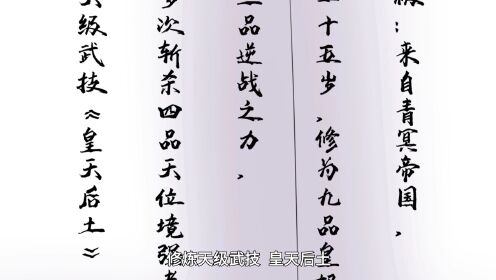 :来自青冥帝国,
十五岁,修为九品皇
品逆战之力,
多次斩杀四品天位境强者
天级武技《皇天后土》
修炼天级武技 皇天后土